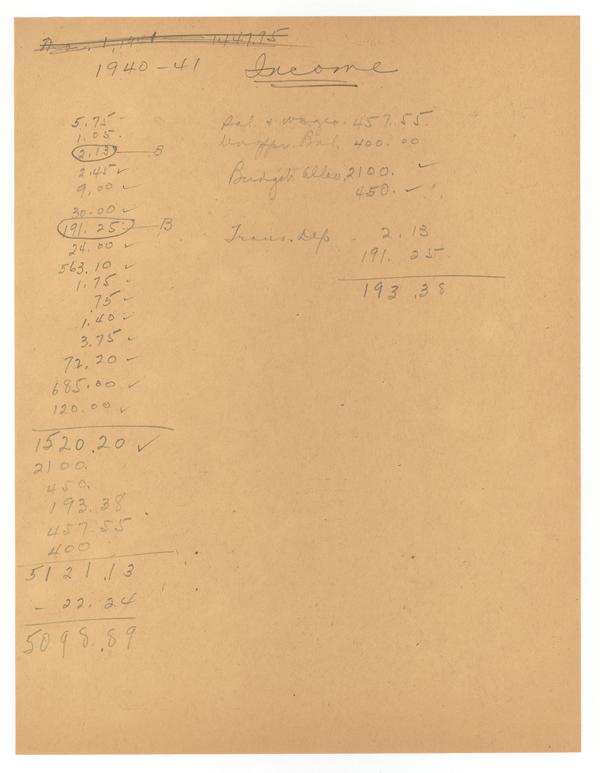 1,147.95
1940-41 Income
5.75
1.05
2.13 B
2.45 ✓
9.00 ✓
30.00 ✓
191.25 B
24.00 ✓
563.10 ✓
1.75
.75
1.40
3.75
72.20
685.00 ✓
120.00 ✓
1520.20 ✓
2100.
450.
193.38
457.55
400
5121.13
- 22.24
5098.89
Sal. & wages. 457.55
Bal. 400.00
Budget Alloc. 2100. ✓
450. ✓
Trans. Dep. 2.13
191.25
193.38